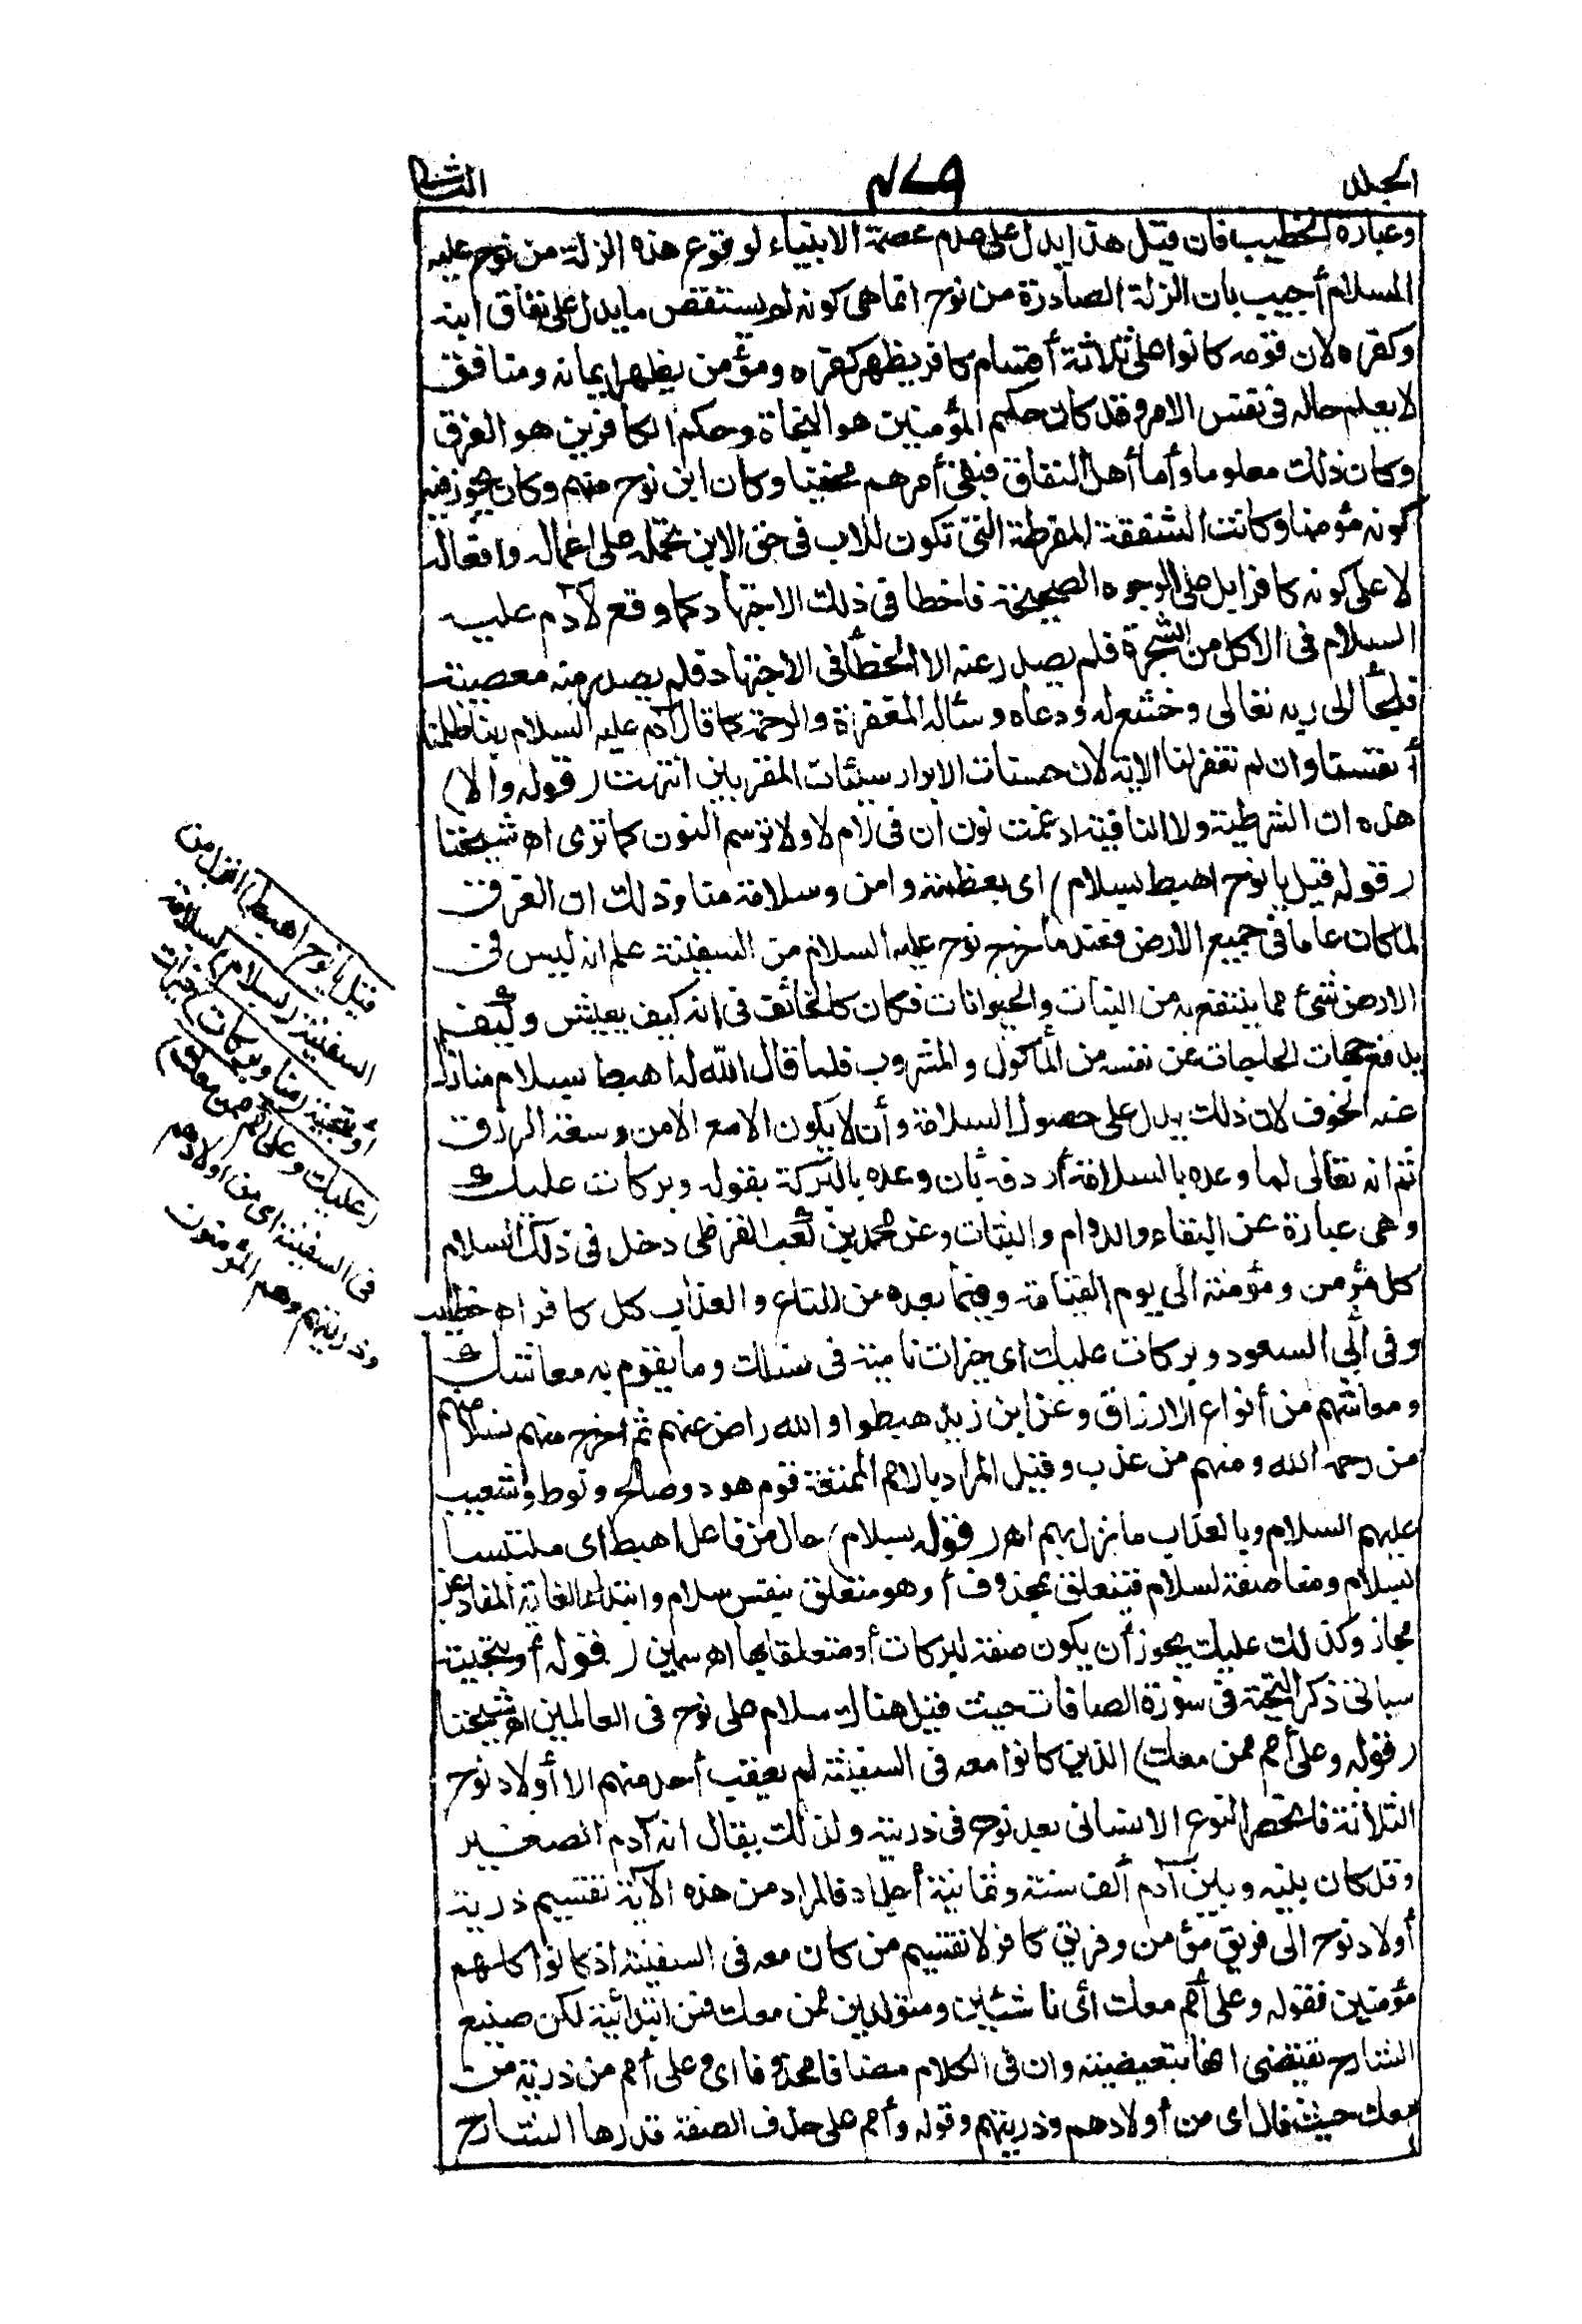 الجلد
٤٧٩
الثانى
وعبارة الخطيب فان قيل هذا يدل على عدم عصمة الانبياء لوقوع هذه الزلة من نوح عليه
السلام أجيب بان الزلة الصادرة من نوح انما هى كونه لم يستقص ما يدل على نفاق ابنه
وكفره لان قومه كانوا على ثلاثة أقسام كافر يظهر كفره ومؤمن يظهر ايمانه ومنافق
لا يعلم حاله فى نفس الامر وقد كان حكم المؤمنين هو النجاة وحكم الكافرين هو الغرق
وكان ذلك معلوما وأما أهل النفاق فبقى أمرهم مخفيا وكان ابن نوح منهم وكان يجوز فيه
كونه مؤمنا وكانت الشفقة المفرطة التى تكون للاب فى حق الابن تحمله على اعماله وافعاله
لا على كونه كافرا بل على الوجوه الصحيحة فاخطا فى ذلك الاجتهاد كما وقع لآدم عليه
السلام فى الاكل من الشجرة فلم يصدر عنه الا الخطأ فى الاجتهاد فلم يصدر منه معصية
فلجأ الى ربه تعالى وخشع له ودعاه وسأله المغفرة والرحمة كما قال آدم عليه السلام ربنا ظلمنا
أنفسنا وان لم تغفر لنا الآية لان حسنات الابرار سيئات المقربين انتهت (قوله والا)
هذه ان الشرطية ولا النافية ادغمت نون ان فى لام لا ولا ترسم النون كما ترى اه شيخنا
(قوله قيل يا نوح اهبط بسلام) اى بعظمة وامن وسلامة منا وذلك ان الغرق
لما كان عاما فى جميع الارض فعند ما خرج نوح عليه السلام من السفينة علم انه ليس فى
الارض شئ مما ينتفع به من النبات والحيوانات فكان كالخائف فى انه كيف يعيش وكيف
يدفع جهات الحاجات عن نفسه من المأكول والمشروب فلما قال الله له اهبط بسلام منا زال
عنه الخوف لان ذلك يدل على حصول السلامة وأن لا يكون الا مع الامن وسعة الرزق
ثم انه تعالى لما وعده بالسلامة أردفه بان وعده بالبركة بقوله وبركات عليك
وهى عبارة عن البقاء والدوام والثبات وعن محمد بن كعب القرظى دخل فى ذلك السلام
كل مؤمن ومؤمنة الى يوم القيامة وفيما بعده من المتاع والعذاب كل كافر اه خطيب
وفى أبى السعود وبركات عليك اى خيرات نامية فى نسلك وما يقوم به معاشك
ومعاشهم من أنواع الارزاق وعن ابن زيد هبطوا والله راض عنهم ثم اخرج منهم نسلا منهم
من رحم الله ومنهم من عذب وقيل المراد بالامم الممتعة قوم هود وصالح ولوط وشعيب
عليهم السلام وبالعذاب ما نزل بهم اه (قوله بسلام) حال من فاعل اهبط اى ملتبسا
بسلام ومنا صفة لسلام فيتعلق بمحذوف أو هو متعلق بنفس سلام وابتداء الغاية
مجاز وكذلك عليك يجوز أن يكون صفة لبركات أو متعلقا بها اه سمين (قوله أو بتحية)
سيأتى ذكر التحية فى سورة الصافات حيث قيل هناك سلام على نوح فى العالمين اه شيخنا
(قوله وعلى أمم ممن معك) الذين كانوا معه فى السفينة لم يعقب أحد منهم الا أولاد نوح
الثلاثة فانحصر النوع الانسانى بعد نوح فى ذريته ولذلك يقال انه آدم الصغير
وقد كان بينه وبين آدم ألف سنة وثمانية أجداد فالمراد من هذه الآية تقسيم ذرية
أولاد نوح الى فريق مؤمن وفريق كافر لا تقسيم من كان معه فى السفينة اذ كانوا كلهم
مؤمنين فقوله وعلى أمم معك أى ناشئين ومتولدين ممن معك فمن ابتدائية لكن صنيع
الشارح يقتضى انها تبعيضية وان فى الكلام مضافا محذوفا اى وعلى أمم من ذرية من
معك حيث قال اى من أولادهم وذريتهم وقوله وأمم على حذف الصفة قدرها الشارح
قيل يا نوح اهبط) انزل من
السفينة (بسلام) بسلامة
أو بتحية (منا وبركات) خيرات
(عليك وعلى أمم ممن معك)
فى السفينة اى من اولادهم
وذريتهم وهم المؤمنون